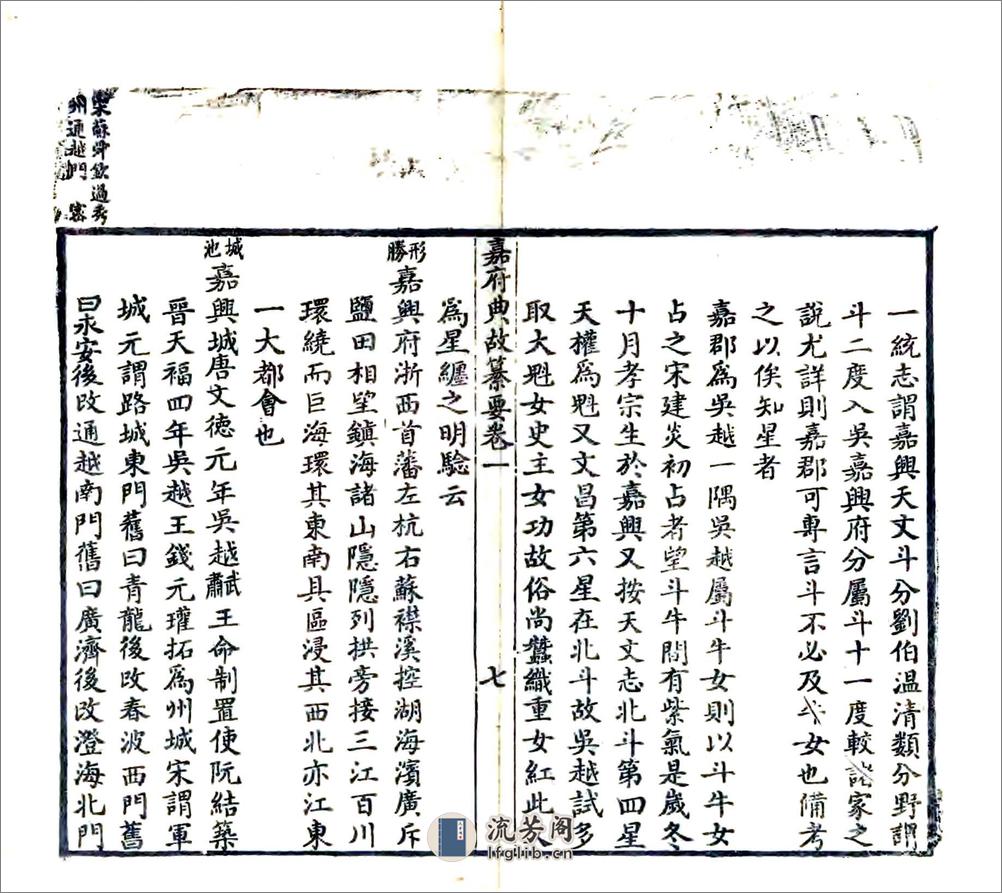 一統志謂嘉興天文斗分劉伯温清類分野謂
斗二度入吳嘉興府分屬斗十一度較諸家之
說尤詳則嘉郡可專言斗不必及斗女也備考
之以俟知星者
嘉郡爲吳越一隅吳越屬斗牛女則以斗牛女
占之宋建炎初占者望斗牛間有紫氣是歲冬
十月孝宗生於嘉興又按天文志北斗第四星
天權爲魁又文昌第六星在北斗故吳越試多
取大魁女史主女功故俗尚蠶織重女紅此
嘉府典故纂要卷一
七
爲星纏之明驗云
形勝嘉興府浙西首藩左杭右蘇襟溪控湖海濱廣斥
鹽田相望鎮海諸山隱隱列拱旁接三江百川
環繞而巨海環其東南具區浸其西北亦江東
一大都會也
城池嘉興城唐文德元年吳越武肅王命制置使阮結築
晉天福四年吳越王錢元瓘拓爲州城宋謂軍
城元謂路城東門舊曰青龍後改春波西門舊
曰永安後改通越南門舊曰廣濟後改澄海北門
宋蘇舜欽過秀
州通越門
流芳阁
lfglib.cn